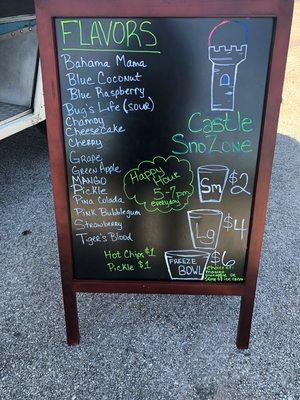 FLAVORS
Bahama Mama
Blue Coconut
Blue Raspberry
Bug's Life (SOUR)
Chamoy
Cheesecake
Cherry
Grape
Green Apple
MANGO
Pickle
Pina Colada
Pink Bubblegum
Strawberry
Tiger's Blood
Castle
SnoZone
Happy
Hour
5-7pm
everyday
Sm $2
Lg $4
FREEZE
BOWL $6
Hot Chips $1
Pickle $1